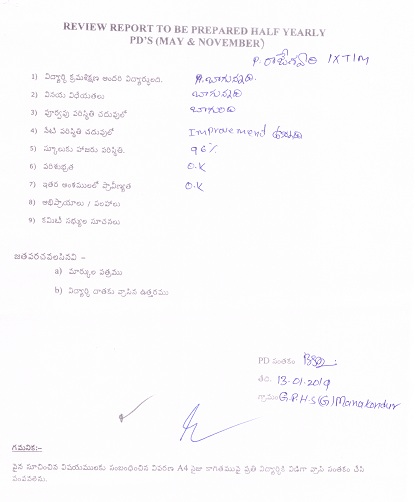 REVIEW REPORT TO BE PREPARED HALF YEARLY
PD'S (MAY & NOVEMBER)
P. రాజేశ్వరి IXTIM
1) విద్యార్థి క్రమశిక్షణ అందరి విద్యార్థులది. బాగున్నది.
2) వినయ విధేయతలు బాగున్నది
3) పూర్వపు పరిస్థితి చదువులో బాగుంది
4) నేటి పరిస్థితి చదువులో Improvement ఉన్నది
5) స్కూలుకు హాజరు పరిస్థితి. 96%
6) పరిశుభ్రత O.K
7) ఇతర అంశములలో ప్రావీణ్యత O.K
8) అభిప్రాయాలు / సలహాలు
9) కమిటీ సభ్యుల సూచనలు
జతపరచవలసినవి :-
a) మార్కుల పత్రము
b) విద్యార్థి చాతకు వ్రాసిన ఉత్తరము
PD సంతకం
తేది. 13-01-2019
గ్రామం G.P.H.S(G) Manakondur
గమనిక:-
పైన సూచించిన విషయములకు సంబంధించిన వివరణ A4 సైజు కాగితముపై ప్రతి విద్యార్థికి విడిగా వ్రాసి సంతకం చేసి
పంపవలెను.